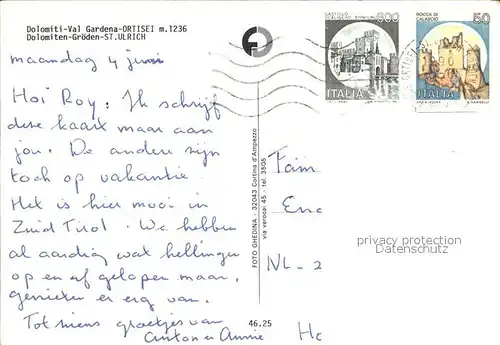 Dolomiti-Val Gardena-ORTISEI m.1236
Dolomiten-Gröden-ST.ULRICH
maandag 4 juni
Hoi Roy! Ik schrijf
deze kaart maar aan
jou. De andere zijn
toch op vakantie.
Het is hier mooi in
Zuid Tirol. We hebben
al aardig wat hellingen
op en af gelopen maar,
genieten er erg van.
Tot ziens groetjes van
Anton en Annie
FOTO GHEDINA - 32043 Cortina d'Ampezzo
via verocai 45 - tel. 3505
46.25
600
ITALIA
ROCCA DI
CALASCIO
50
ITALIA
Fam
NL - 2
privacy protection
Datenschutz